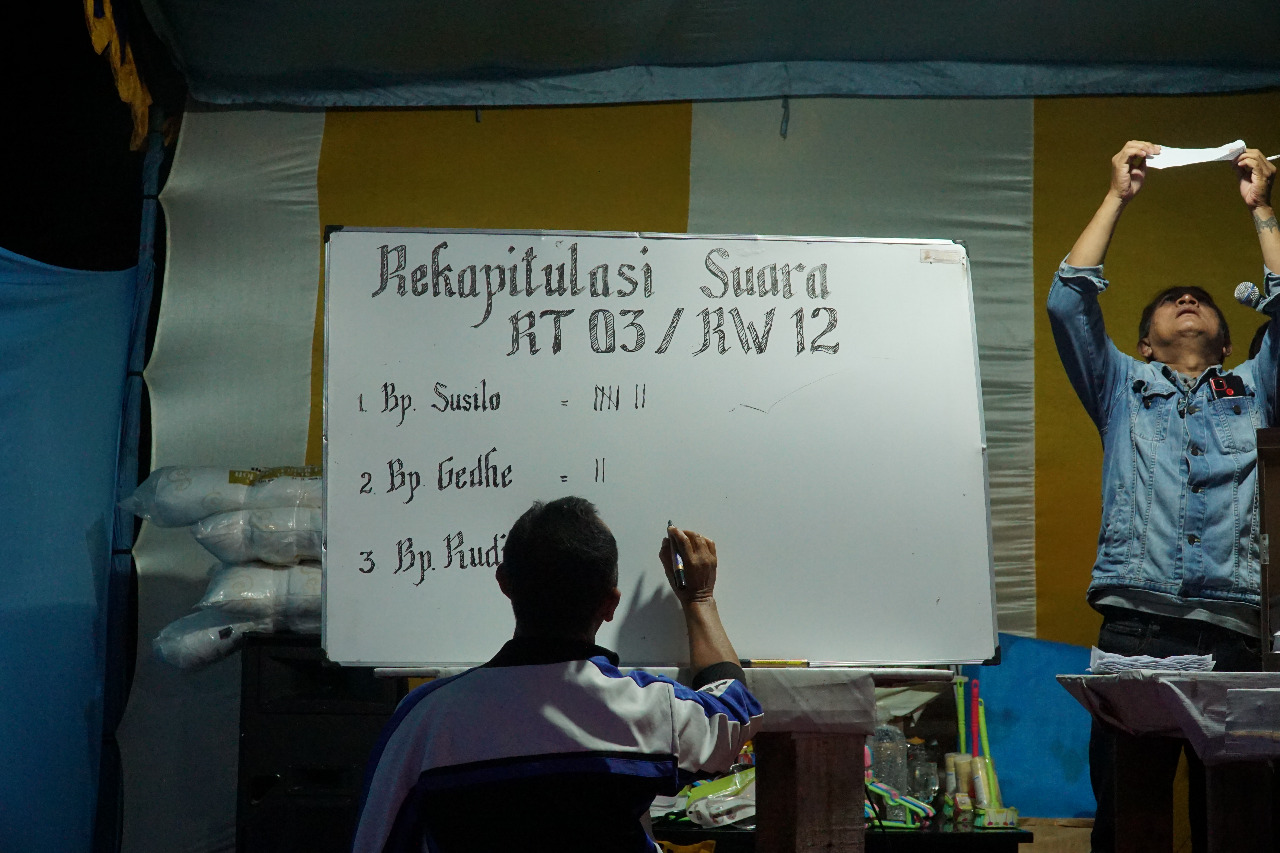 Rekapitulasi Suara
RT 03 / RW 12
1. Bp. Susilo = |||| ||
2. Bp. Gedhe = ||
3 Bp. Rudi